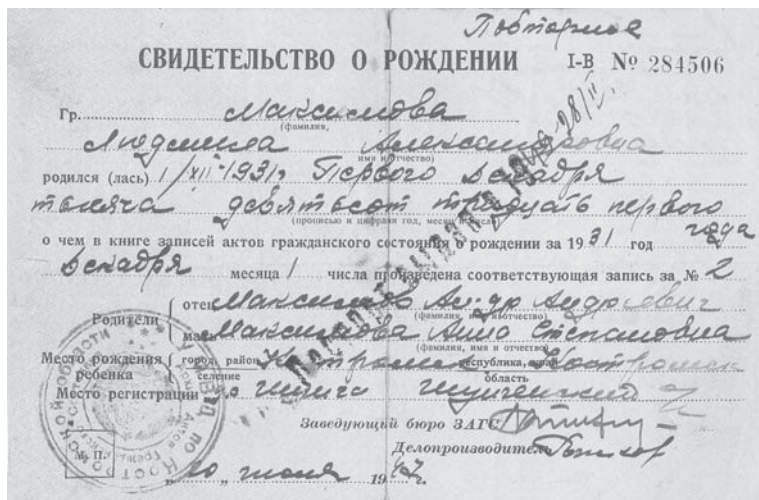 Повторное
СВИДЕТЕЛЬСТВО О РОЖДЕНИИ I-В № 284506
Гр. Максимова
(фамилия,
Людмила Александровна
имя и отчество)
родился (лась) 1/XII-1931 Первого декабря
тысяча девятьсот тридцать первого года
(прописью и цифрами год, месяц и число)
о чем в книге записей актов гражданского состояния о рождении за 1931 год
декабря месяца 1 числа произведена соответствующая запись за № 2
Родители
отец Максимов Ал-др Андреевич
(фамилия, имя и отчество)
мать Максимова Анна Степановна
(фамилия, имя и отчество)
Место рождения ребенка
город, район
селение
республика, край
область
Место регистрации
Заведующий бюро ЗАГС
Делопроизводитель
М. П.
"20" июня 19 г.